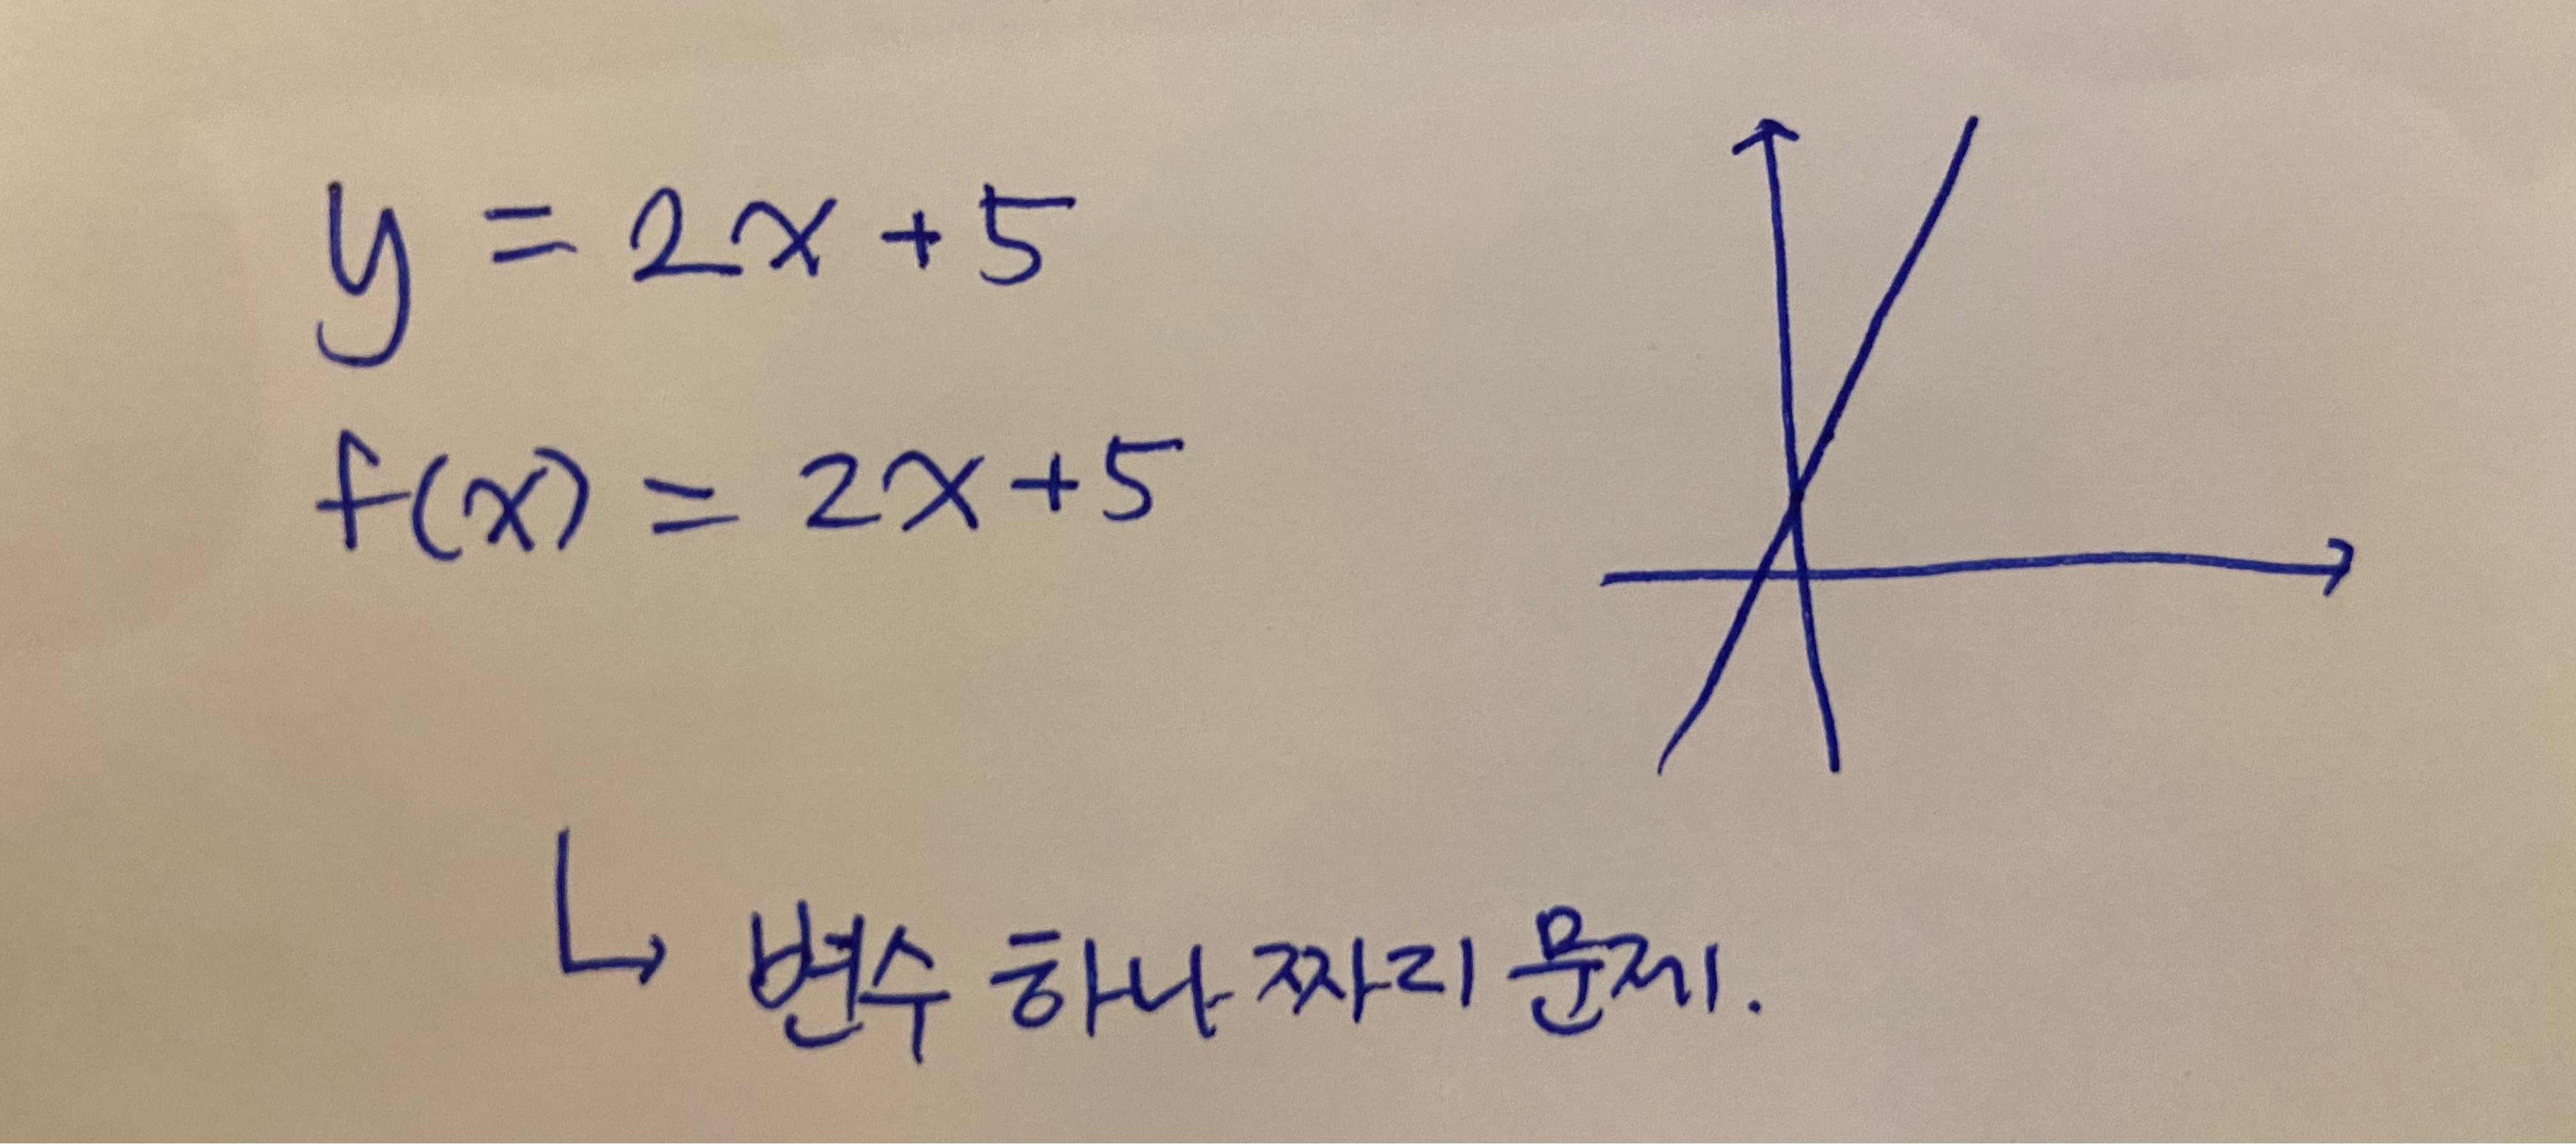 y = 2x + 5
f(x) = 2x + 5
↳ 변수 하나 짜리 문제.